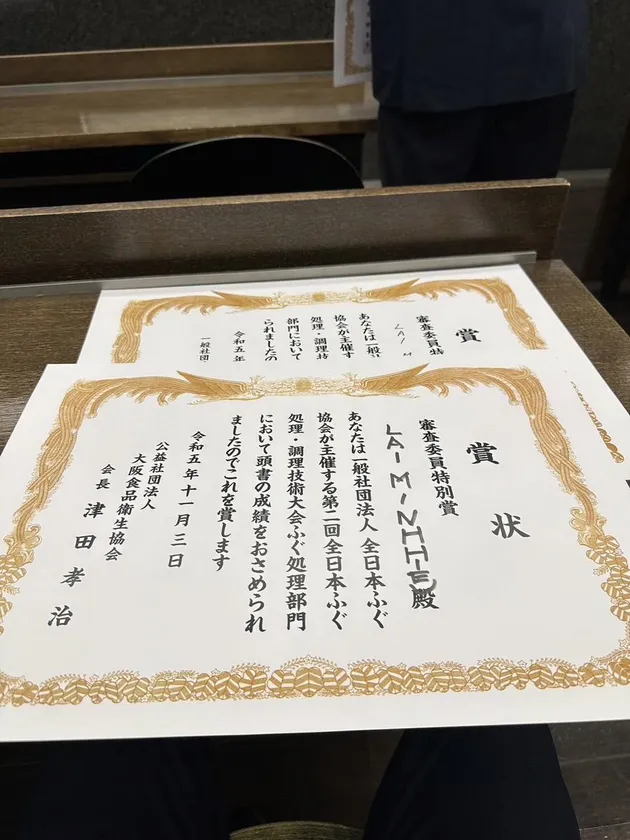 賞
審査委員特
LAI M
あなたは一般
協会が主催す
処理・調理技
部門において
られましたの
令和五年
一般社団
賞状
審査委員特別賞
LAI MINHHIEU殿
あなたは一般社団法人 全日本ふぐ
協会が主催する第二回全日本ふぐ
処理・調理技術大会ふぐ処理部門
において頭書の成績をおさめられ
ましたのでこれを賞します
令和五年十一月三日
公益社団法人
大阪食品衛生協会
会長 津田孝治